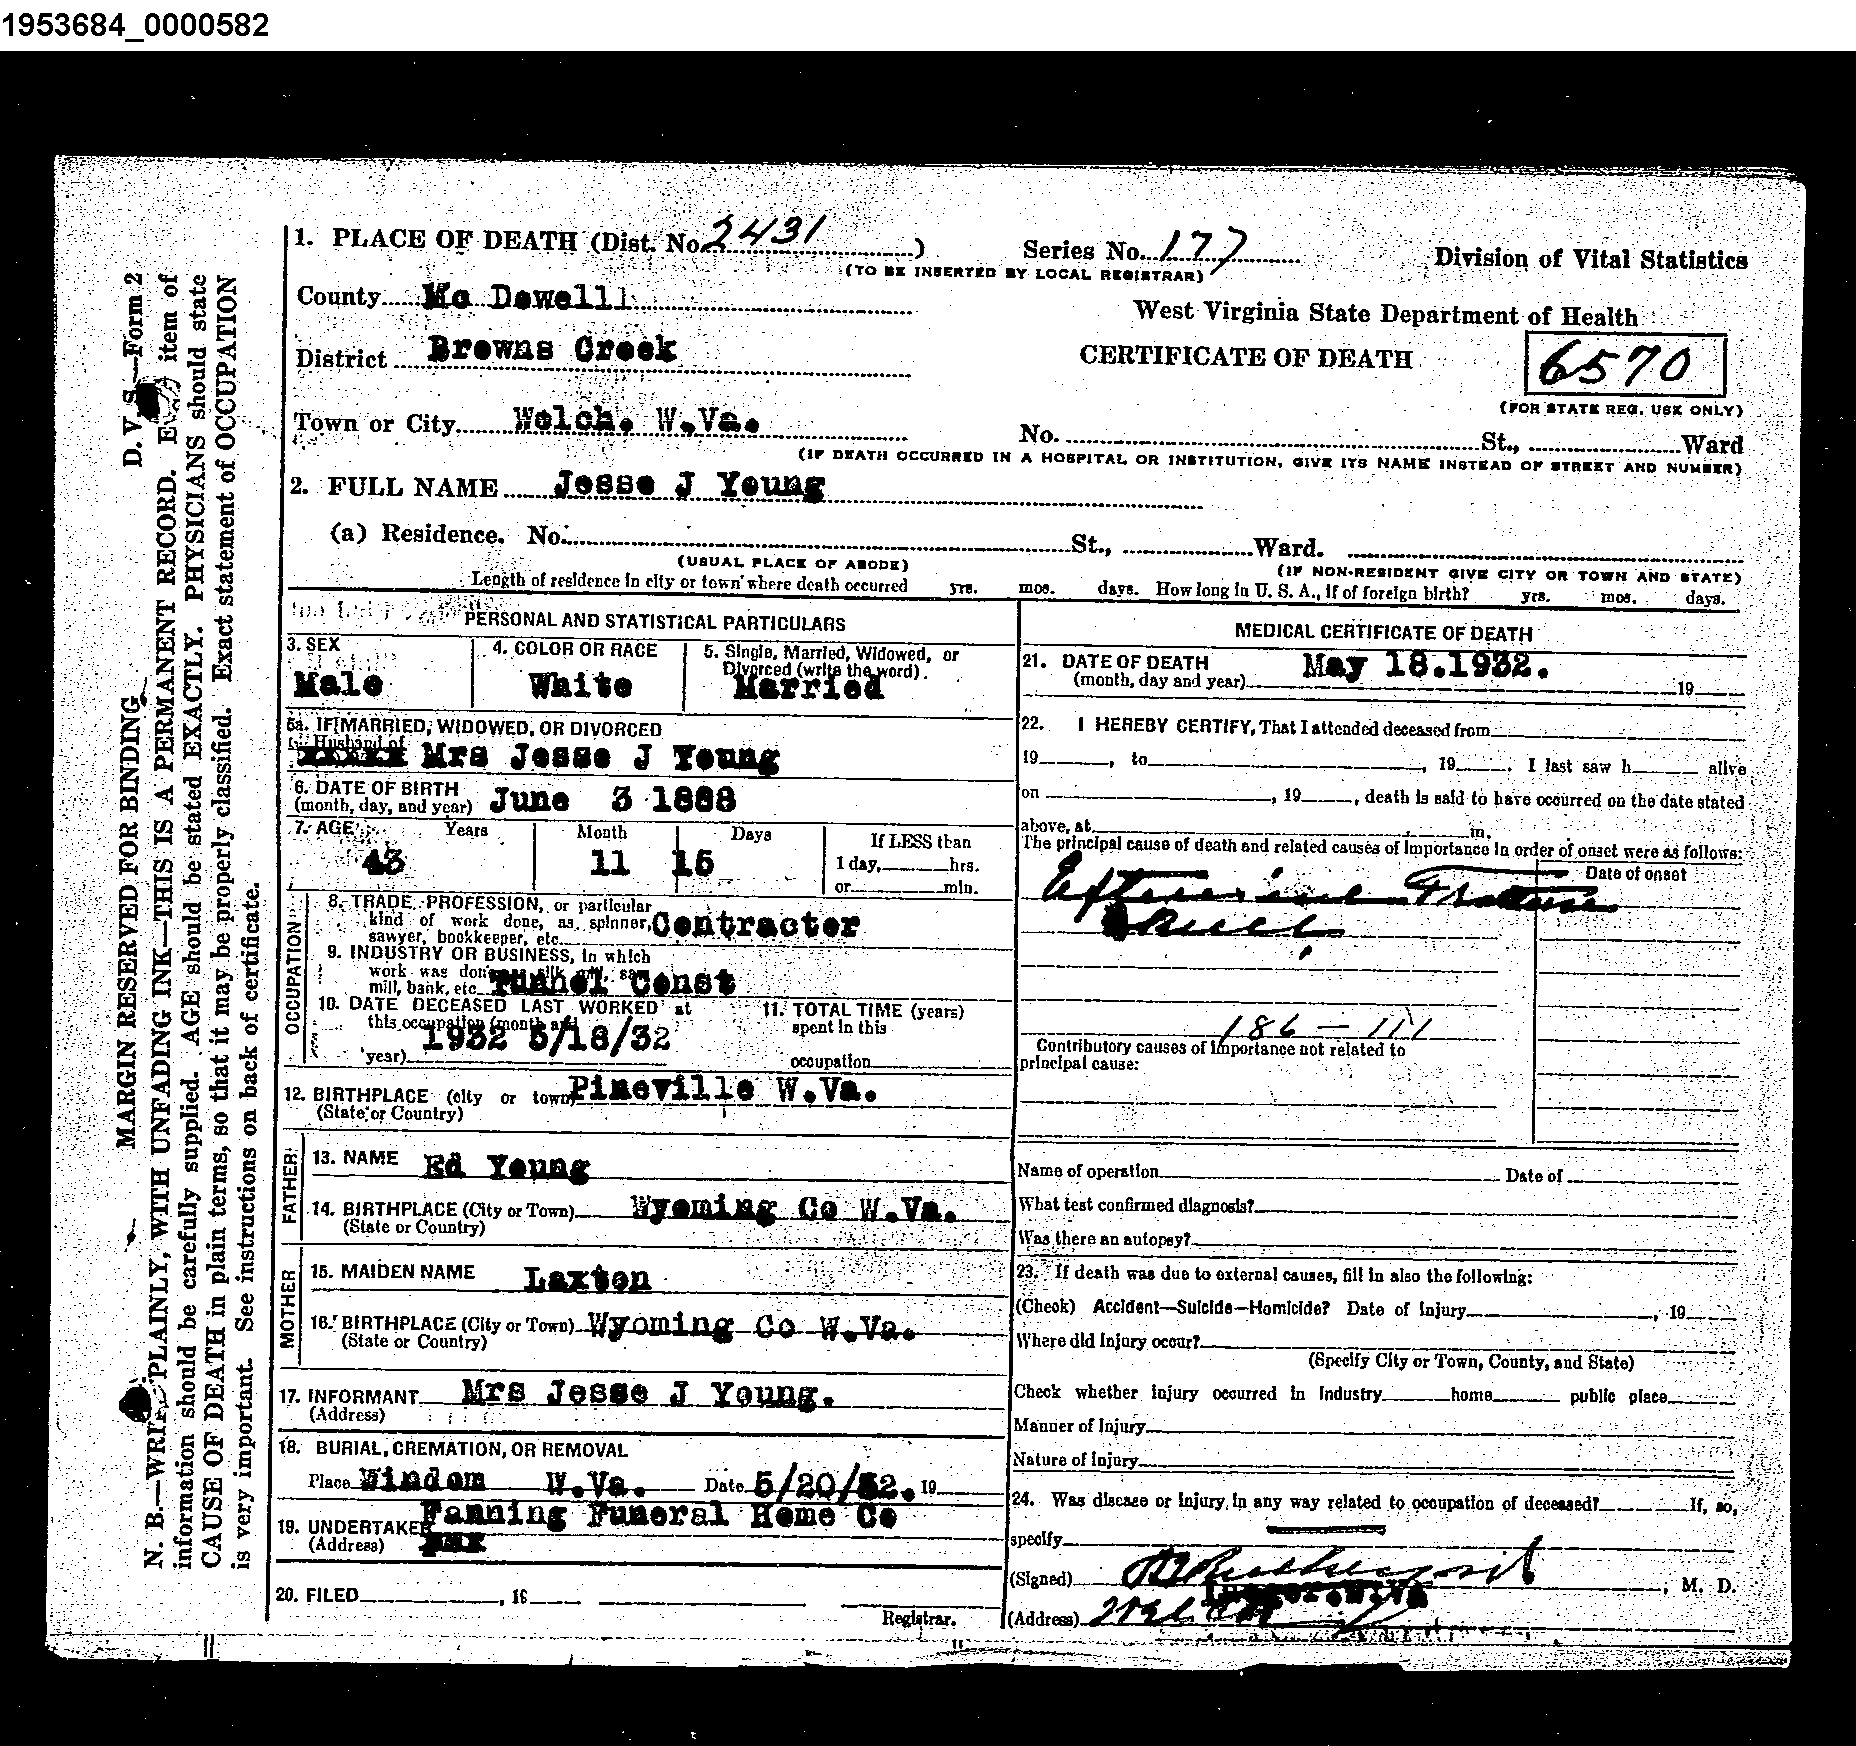 1953684_0000582
1. PLACE OF DEATH (Dist. No. 2431)
Series No. 177
Division of Vital Statistics
(TO BE INSERTED BY LOCAL REGISTRAR)
County Mc Dowell
West Virginia State Department of Health
District Browns Creek
CERTIFICATE OF DEATH
6570
(FOR STATE REG. USE ONLY)
Town or City Welch. W.Va.
No. St., Ward
(IF DEATH OCCURRED IN A HOSPITAL OR INSTITUTION, GIVE ITS NAME INSTEAD OF STREET AND NUMBER)
2. FULL NAME Jesse J Young
(a) Residence. No. St., Ward.
(USUAL PLACE OF ABODE)
(IF NON-RESIDENT GIVE CITY OR TOWN AND STATE)
Length of residence in city or town where death occurred yrs. mos. days. How long in U. S. A., if of foreign birth? yrs. mos. days.
PERSONAL AND STATISTICAL PARTICULARS
3. SEX
Male
4. COLOR OR RACE
White
5. Single, Married, Widowed, or
Divorced (write the word).
Married
5a. IF MARRIED, WIDOWED, OR DIVORCED
Husband of
Mrs Jesse J Young
6. DATE OF BIRTH
(month, day, and year) June 3 1888
7. AGE Years Month Days If LESS than
43 11 15 1 day, hrs.
or min.
OCCUPATION
8. TRADE, PROFESSION, or particular
kind of work done, as spinner,
sawyer, bookkeeper, etc. Contractor
9. INDUSTRY OR BUSINESS, in which
work was done, as silk mill, saw
mill, bank, etc. Tunnel Const
10. DATE DECEASED LAST WORKED at
this occupation (month and
year) 1932 5/18/32
11. TOTAL TIME (years)
spent in this
occupation
12. BIRTHPLACE (city or town) Pineville W.Va.
(State or Country)
FATHER
13. NAME Ed Young
14. BIRTHPLACE (City or Town) Wyoming Co W.Va.
(State or Country)
MOTHER
15. MAIDEN NAME Laxton
16. BIRTHPLACE (City or Town) Wyoming Co W.Va.
(State or Country)
17. INFORMANT Mrs Jesse J Young.
(Address)
18. BURIAL, CREMATION, OR REMOVAL
Place Windom W.Va. Date 5/20/32. 19
19. UNDERTAKER Fanning Funeral Home Co
(Address)
20. FILED , 19
Registrar.
MEDICAL CERTIFICATE OF DEATH
21. DATE OF DEATH
(month, day and year) May 18.1932. 19
22. I HEREBY CERTIFY, That I attended deceased from
19 , to , 19 . I last saw h alive
on , 19 , death is said to have occurred on the date stated
above, at m.
The principal cause of death and related causes of importance in order of onset were as follows:
Date of onset
Fracture
Skull
186 - 111
Contributory causes of importance not related to
principal cause:
Name of operation Date of
What test confirmed diagnosis?
Was there an autopsy?
23. If death was due to external causes, fill in also the following:
(Check) Accident—Suicide—Homicide? Date of injury , 19
Where did injury occur?
(Specify City or Town, County, and State)
Check whether injury occurred in industry home public place
Manner of injury
Nature of injury
24. Was disease or injury in any way related to occupation of deceased? If, so,
specify
(Signed) , M. D.
(Address)
D. V. S.—Form 2
MARGIN RESERVED FOR BINDING
N. B.—WRITE PLAINLY, WITH UNFADING INK—THIS IS A PERMANENT RECORD. Every item of
information should be carefully supplied. AGE should be stated EXACTLY. PHYSICIANS should state
CAUSE OF DEATH in plain terms, so that it may be properly classified. Exact statement of OCCUPATION
is very important. See instructions on back of certificate.